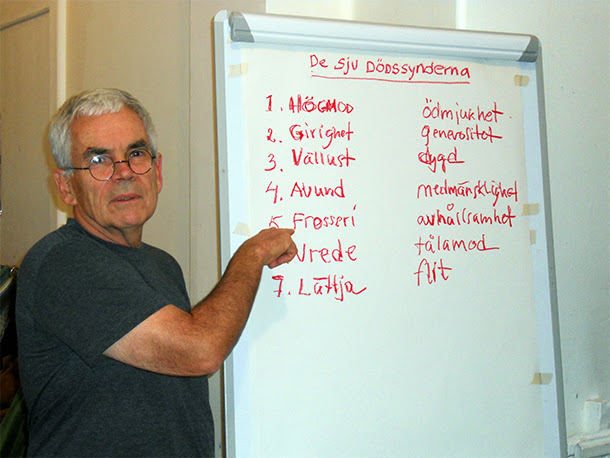 De sju DÖDSSYNDERNA
1. HÖGMOD ödmjukhet.
2. Girighet generositet
3. Vällust dygd
4. Avund medmänsklighet
5. Frosseri avhållsamhet
Vrede tålamod
7. Lättja flit